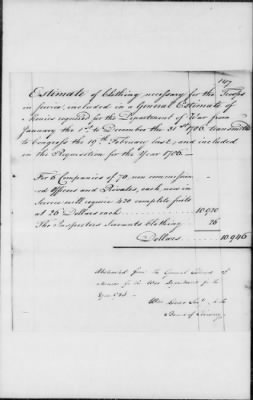 149
Estimate of Clothing necessary for the Troops
in service, included in a General Estimate of
Monies required for the Department of War from
January the 1st to December the 31st 1786, transmitted
to Congress the 19th February last, and included
in the Requisition for the Year 1786 —
For 6 Companies of 70, non commission-
ed Officers and Privates, each, now in
Service will require 420 complete suits
at 26 Dollars each 10,920
The Inspectors Servants Clothing 26
Dollars 10,946
Abstracted from the General Estimate of
Monies for the War Department for the
Year 1786 —
Board of Treasury